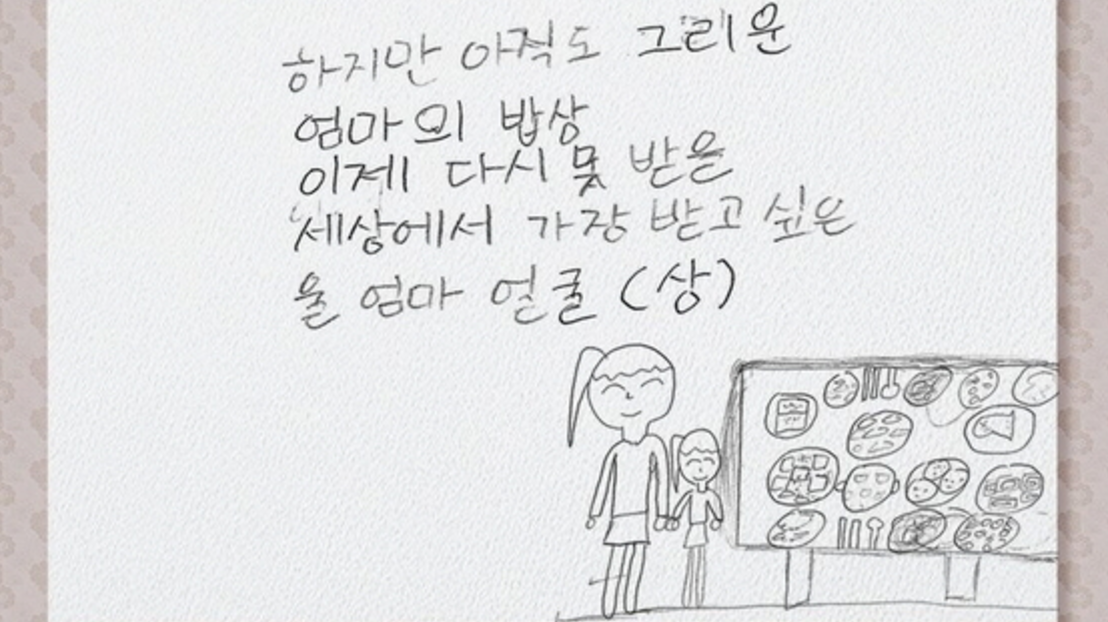 하지만 아직도 그리운
엄마의 밥상
이제 다시 못 받을
세상에서 가장 받고 싶은
울 엄마 얼굴 (상)